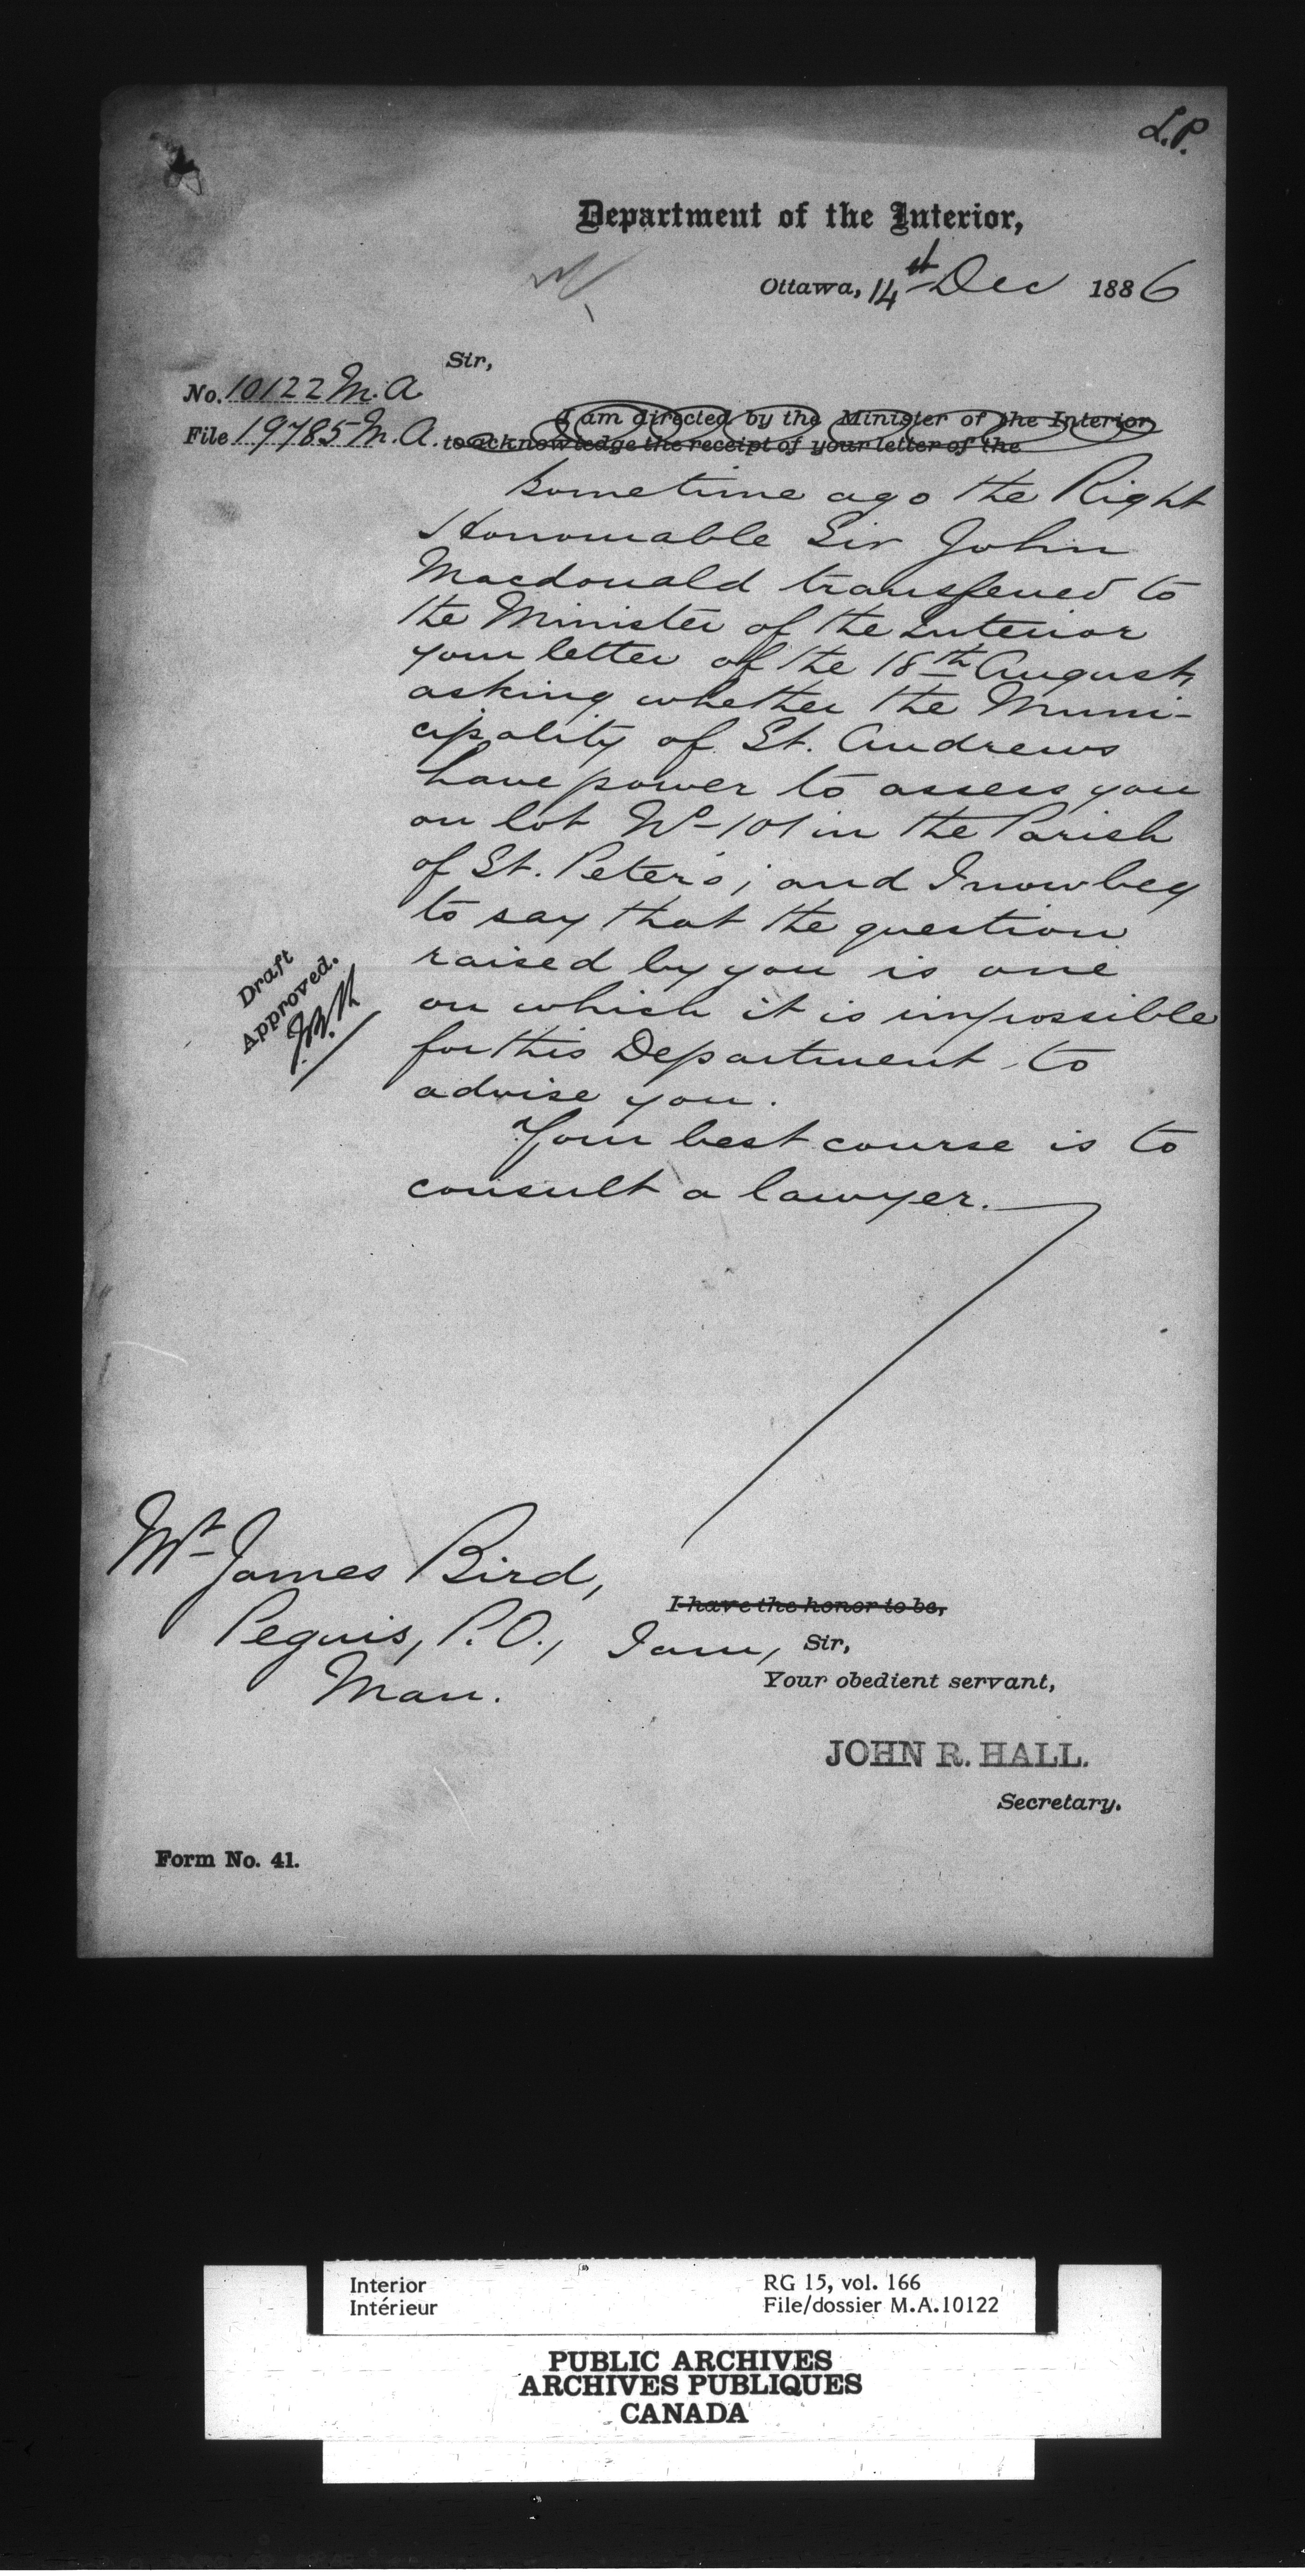 L.P.
Department of the Interior,
Ottawa, 14st Dec 1886
Sir,
No. 10122 M.A
File 19785 M.A.
I am directed by the Minister of the Interior
to acknowledge the receipt of your letter of the
Sometime ago the Right
Honourable Sir John
Macdonald transferred to
the Minister of the Interior
your letter of the 18th August,
asking whether the Muni-
cipality of St. Andrews
have power to assess you
on lot No 101 in the Parish
of St. Peter's; and I now beg
to say that the question
raised by you is one
on which it is impossible
for this Department to
advise you.
Your best course is to
consult a lawyer.
Draft
Approved.
Mr James Bird,
Peguis, P.O.,
Man.
I have the honor to be,
I am, Sir,
Your obedient servant,
JOHN R. HALL.
Secretary.
Form No. 41.
Interior
Intérieur
RG 15, vol. 166
File/dossier M.A.10122
PUBLIC ARCHIVES
ARCHIVES PUBLIQUES
CANADA